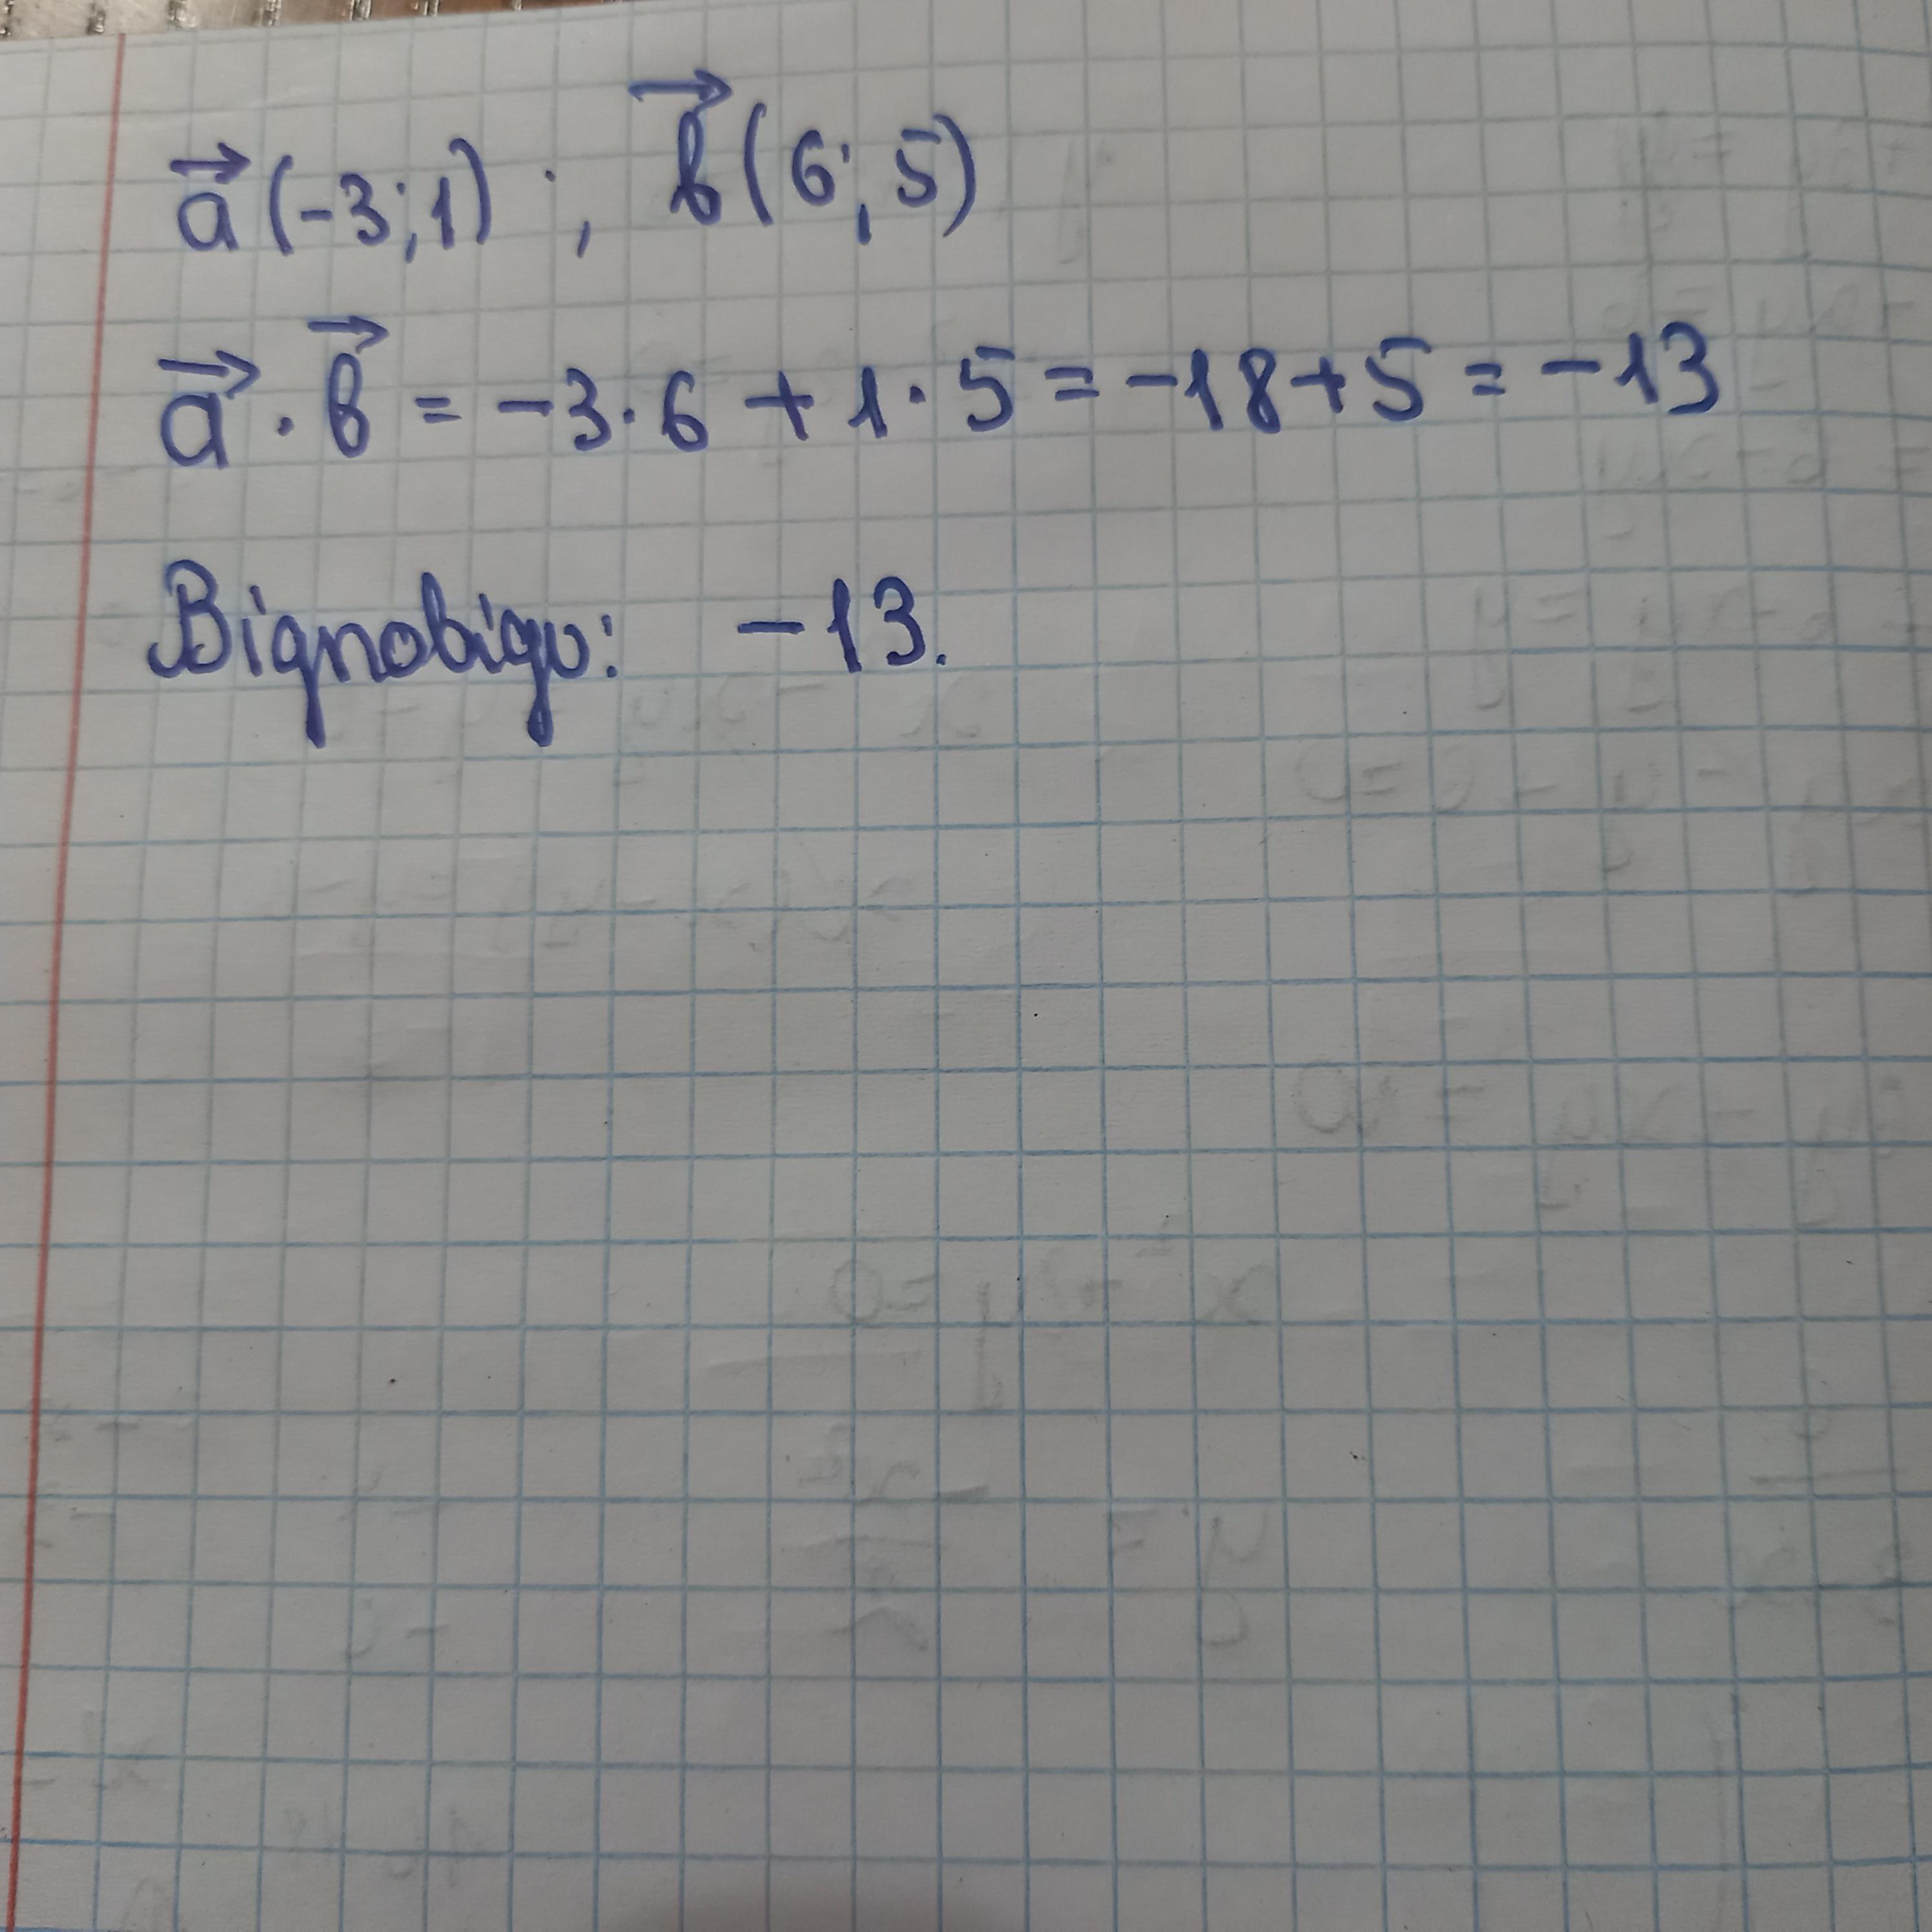 a⃗ (-3; 1) ; b⃗ (6; 5)
a⃗ · b⃗ = -3 · 6 + 1 · 5 = -18 + 5 = -13
Відповідь: -13.